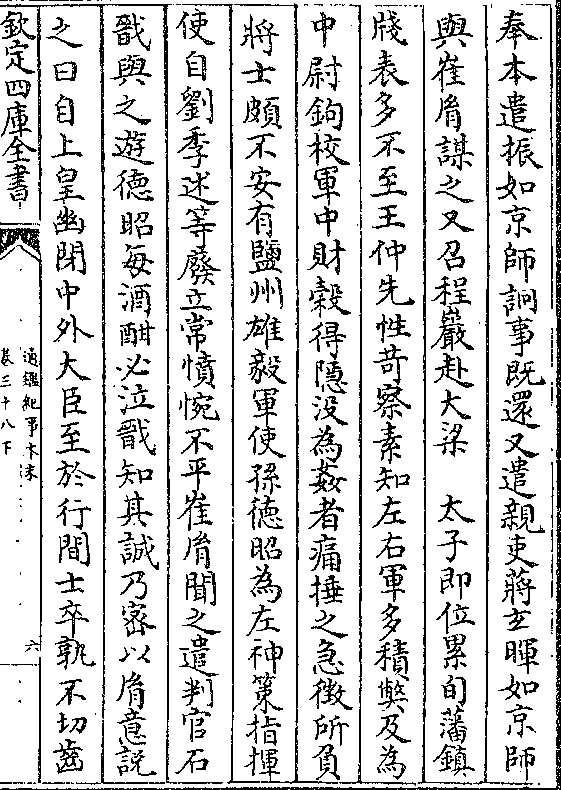 奉本遣振如京師詗事既還又遣親吏蔣玄暉如京師
與崔胤謀之又召程巖赴大梁　太子即位累旬藩鎮
牋表多不至王仲先性苛察素知左右軍多積獘及為
中尉鉤校軍中財糓得隱没為姦者痛捶之急徴所負
將士頗不安有鹽州雄毅軍使孫徳昭為左神策指揮
使自劉季述等廢立常憤惋不平崔胤聞之遣判官石
戩與之遊徳昭每酒酣必泣戩知其誠乃宻以胤意説
之曰自上皇幽閉中外大臣至於行間士卒孰不切齒
欽定四庫全書
通鑑紀事本末
卷三十八下
六